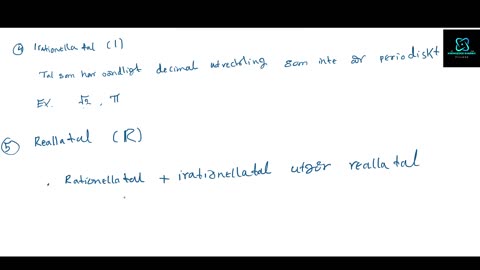 ④ Irationella tal (I)
Tal som har oändligt decimal utveckling som inte är periodiskt
Ex. √2, π
⑤ Reallatal (R)
. Rationellatal + irationellatal utgör reallatal